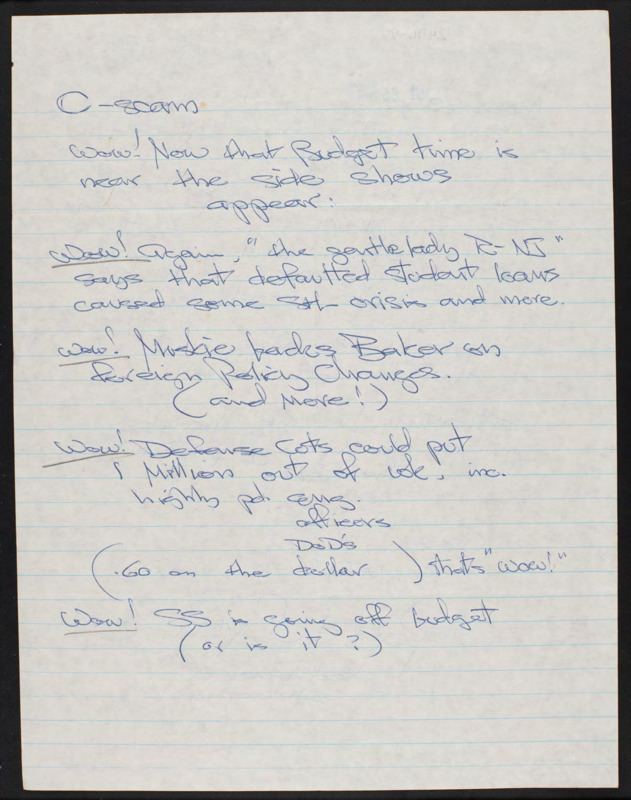 C-scam
Wow! Now that Budget time is
near the side shows
appear:
Wow! Again, "the gentlelady R-NJ"
says that defaulted student loans
caused some S+L crisis and more.
Wow! Muskie backs Baker on
foreign Policy Changes.
(and More!)
Wow! Defense Cuts could put
1 Million out of wk, inc.
highly pd.
officers
DoD's
(.60 on the dollar) that's "wow!"
Wow! SS is going off budget
(or is it?)